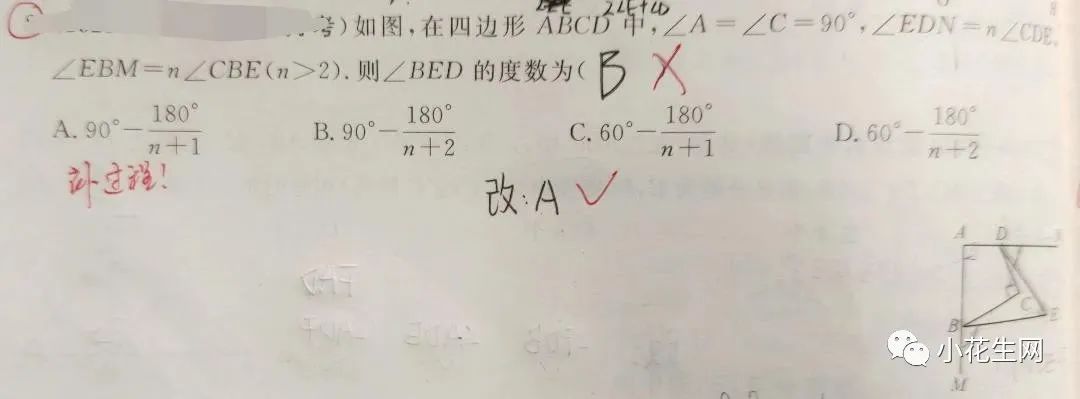 考)如图,在四边形 ABCD 中,∠A=∠C=90°,∠EDN=n∠CDE,
∠EBM=n∠CBE(n>2).则∠BED 的度数为( B ✗
A. 90°-180°/(n+1) B. 90°-180°/(n+2) C. 60°-180°/(n+1) D. 60°-180°/(n+2)
补过程!
改:A ✓
A D
C
E
B
M
小花生网